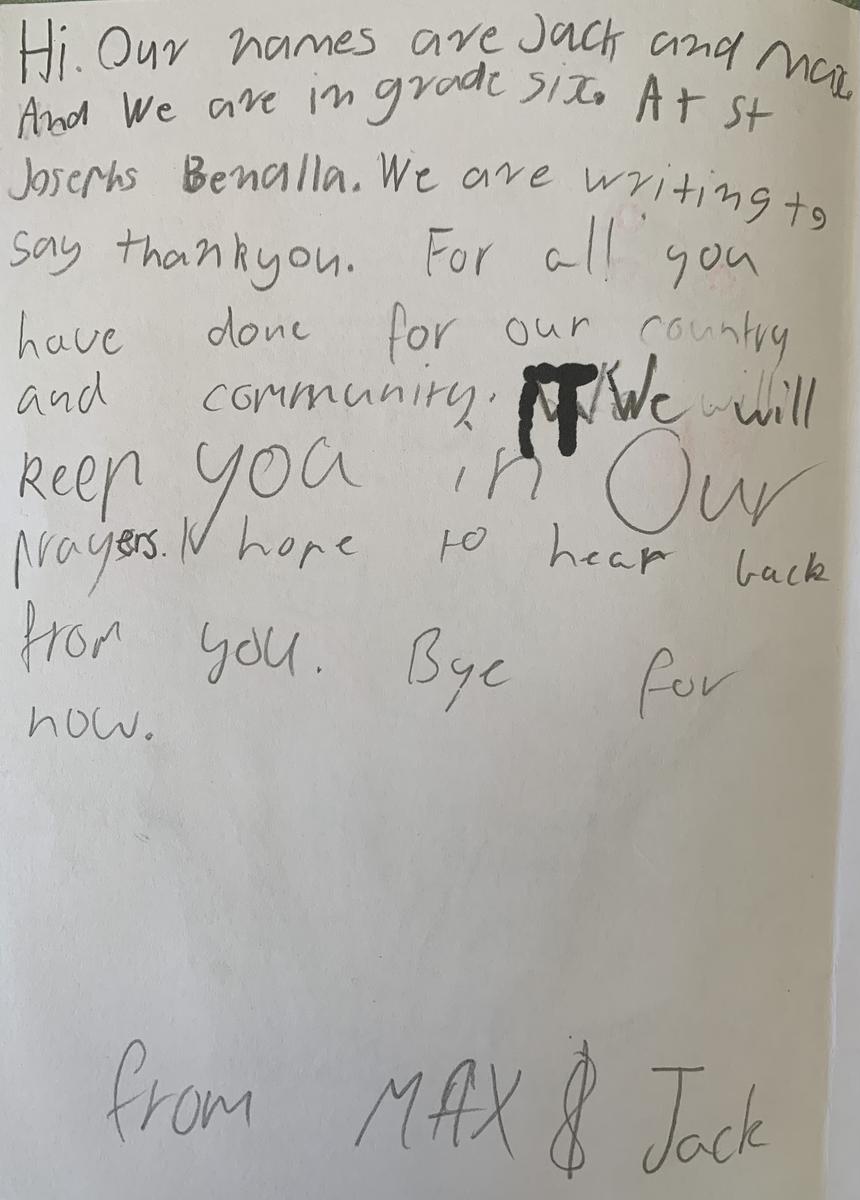 Hi. Our names are Jack and Max.
And We are in grade six. At st
Josephs Benalla. We are writing to
say thankyou. For all you
have done for our country
and community. IT We will
keep you in Our
prayers. hope to hear back
from you. Bye for
now.
from MAX & Jack